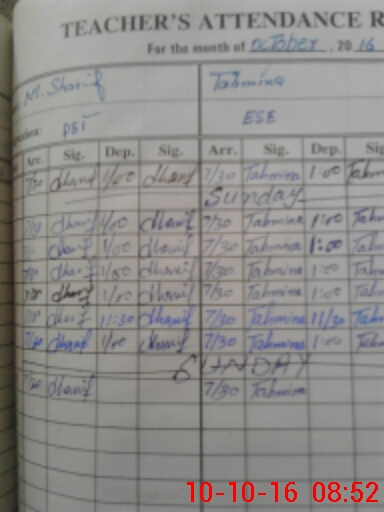 TEACHER'S ATTENDANCE R
For the month of October, 2016
M. Sharif Tahmina
PST ESE
Arr. Sig. Dep. Sig. Arr. Sig. Dep. Sig
7/30 Sharif 1/00 Sharif 7/30 Tahmina 1:00 Tahm
Sunday
Sharif 1/00 Sharif 7/30 Tahmina 1:00 Tah
Sharif 1/00 Sharif 7/30 Tahmina 1:00 Tah
Sharif 1/00 Sharif 7/30 Tahmina 1:00 Tah
Sharif 1/00 Sharif 7/30 Tahmina 1:00 Tah
Sharif 11:30 Sharif 7/30 Tahmina 11/30 Tah
Sharif 1/00 Sharif 7/30 Tahmina 1:00 Tah
SUNDAY
7/30 Sharif 7/30 Tahmina
10-10-16 08:52